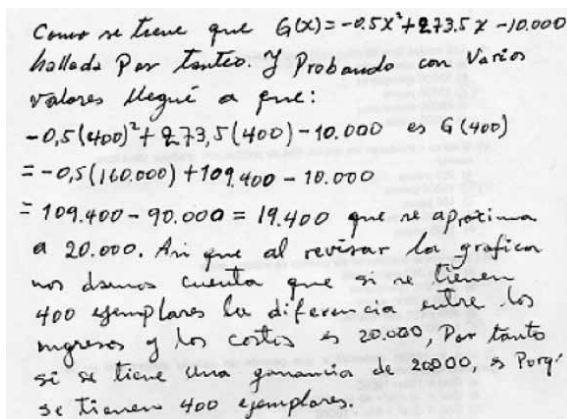 Como se tiene que G(x)=-0.5x²+273.5x-10.000
hallada Por tanteo. Y Probando con Varios
valores llegué a que:
-0,5(400)²+273,5(400)-10.000 es G(400)
=-0,5(160.000)+109.400-10.000
= 109.400-90.000=19.400 que se aproxima
a 20.000. Asi que al revisar la grafica
nos damos cuenta que si se tienen
400 ejemplares la diferencia entre los
ingresos y los costos es 20.000, Por tanto
si se tiene una ganancia de 20000, es Porq:
se tienen 400 ejemplares.